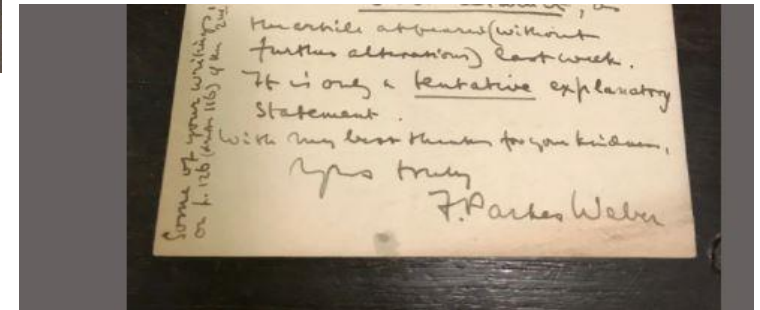 the article appeared (without
further alterations) last week.
It is only a tentative explanatory
statement.
With my best thanks for your kindness,
Yrs truly
F. Parkes Weber
Some of your writings,
on p. 126